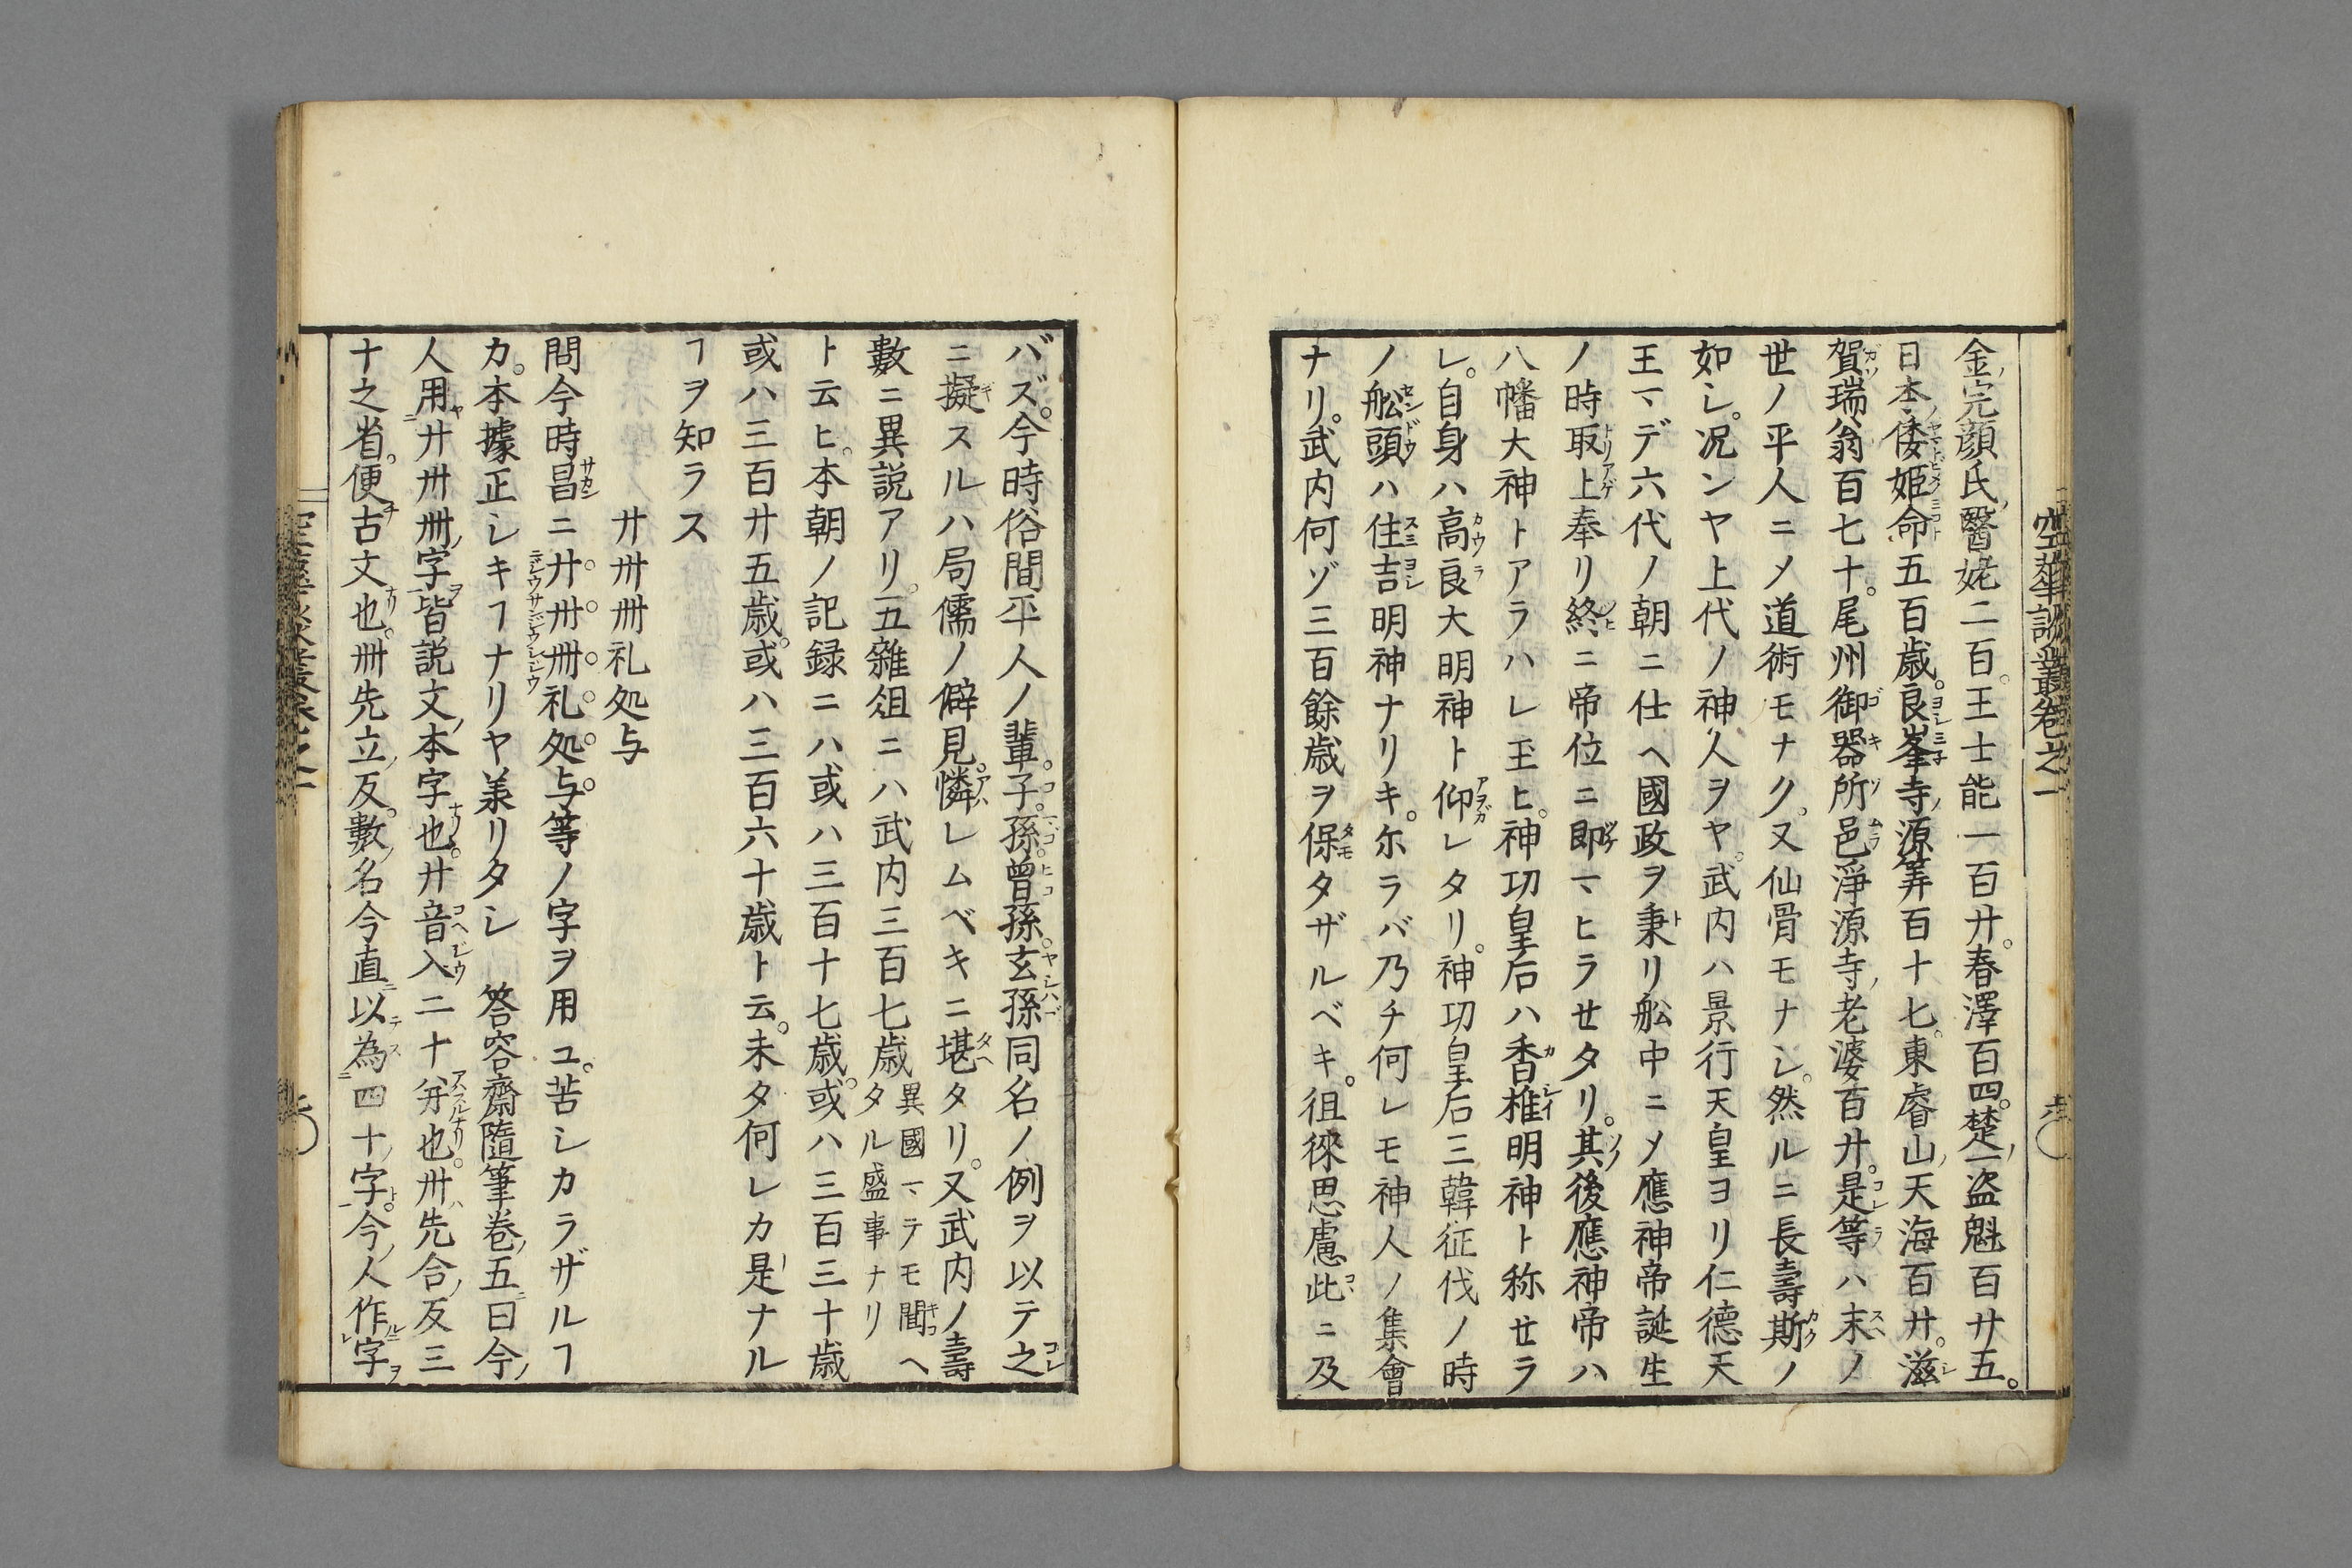 空華談叢卷之一
金ノ完顔氏ノ醫姥二百。王士能一百廿。春澤百四。楚ノ一盗魁百廿五。
日本ノ倭姫命五百歳。良峯寺ノ源筭百十七。東睿山ノ天海百廿。滋
賀ノ瑞翁百七十。尾州御器所邑淨源寺ノ老婆百廿。是等ハ末ノ
世ノ平人ニメ道術モナク。又仙骨モナシ。然ルニ長壽斯ノ
如シ。况ンヤ上代ノ神人ヲヤ。武内ハ景行天皇ヨリ仁德天
王マデ六代ノ朝ニ仕ヘ國政ヲ秉リ舩中ニメ應神帝誕生
ノ時取上奉リ終ニ帝位ニ即マヒラせタリ。其後應神帝ハ
八幡大神トアラハレ玉ヒ。神功皇后ハ香椎明神ト称せラ
レ。自身ハ高良大明神ト仰レタリ。神功皇后三韓征伐ノ時
ノ舩頭ハ住吉明神ナリキ。尓ラバ乃チ何レモ神人ノ集會
ナリ。武内何ゾ三百餘歳ヲ保タザルベキ。徂徠思慮此ニ及
バズ。今時俗間平人ノ輩。子。孫。曾孫。玄孫同名ノ例ヲ以テ之
ニ擬スルハ局儒ノ僻見。憐レムベキニ堪タリ。又武内ノ壽
數ニ異説アリ。五雜俎ニハ武内三百七歳異國マテモ聞ヘタル盛事ナリ
ト云ヒ。本朝ノ記録ニハ或ハ三百十七歳。或ハ三百三十歳
或ハ三百廿五歳。或ハ三百六十歳ト云。未タ何レカ是ナル
ヿヲ知ラス
廿卅卌礼処与
問今時昌ニ廿。卅。卌。礼。処。与。等ノ字ヲ用ユ。苦シカラザルヿ
カ。本據正シキヿナリヤ美リタシ　答容齋隨筆卷ノ五ニ曰今ノ
人用ヤ廿卅卌ノ字ヲ皆説文ノ本字也。廿音入二十并也。卅ハ先合ノ反三
十之省。便チ古文也。卌先立ノ反。數ノ名今直ニ以テ為ス四十ノ字ト。今ノ人作ルニ字ヲ